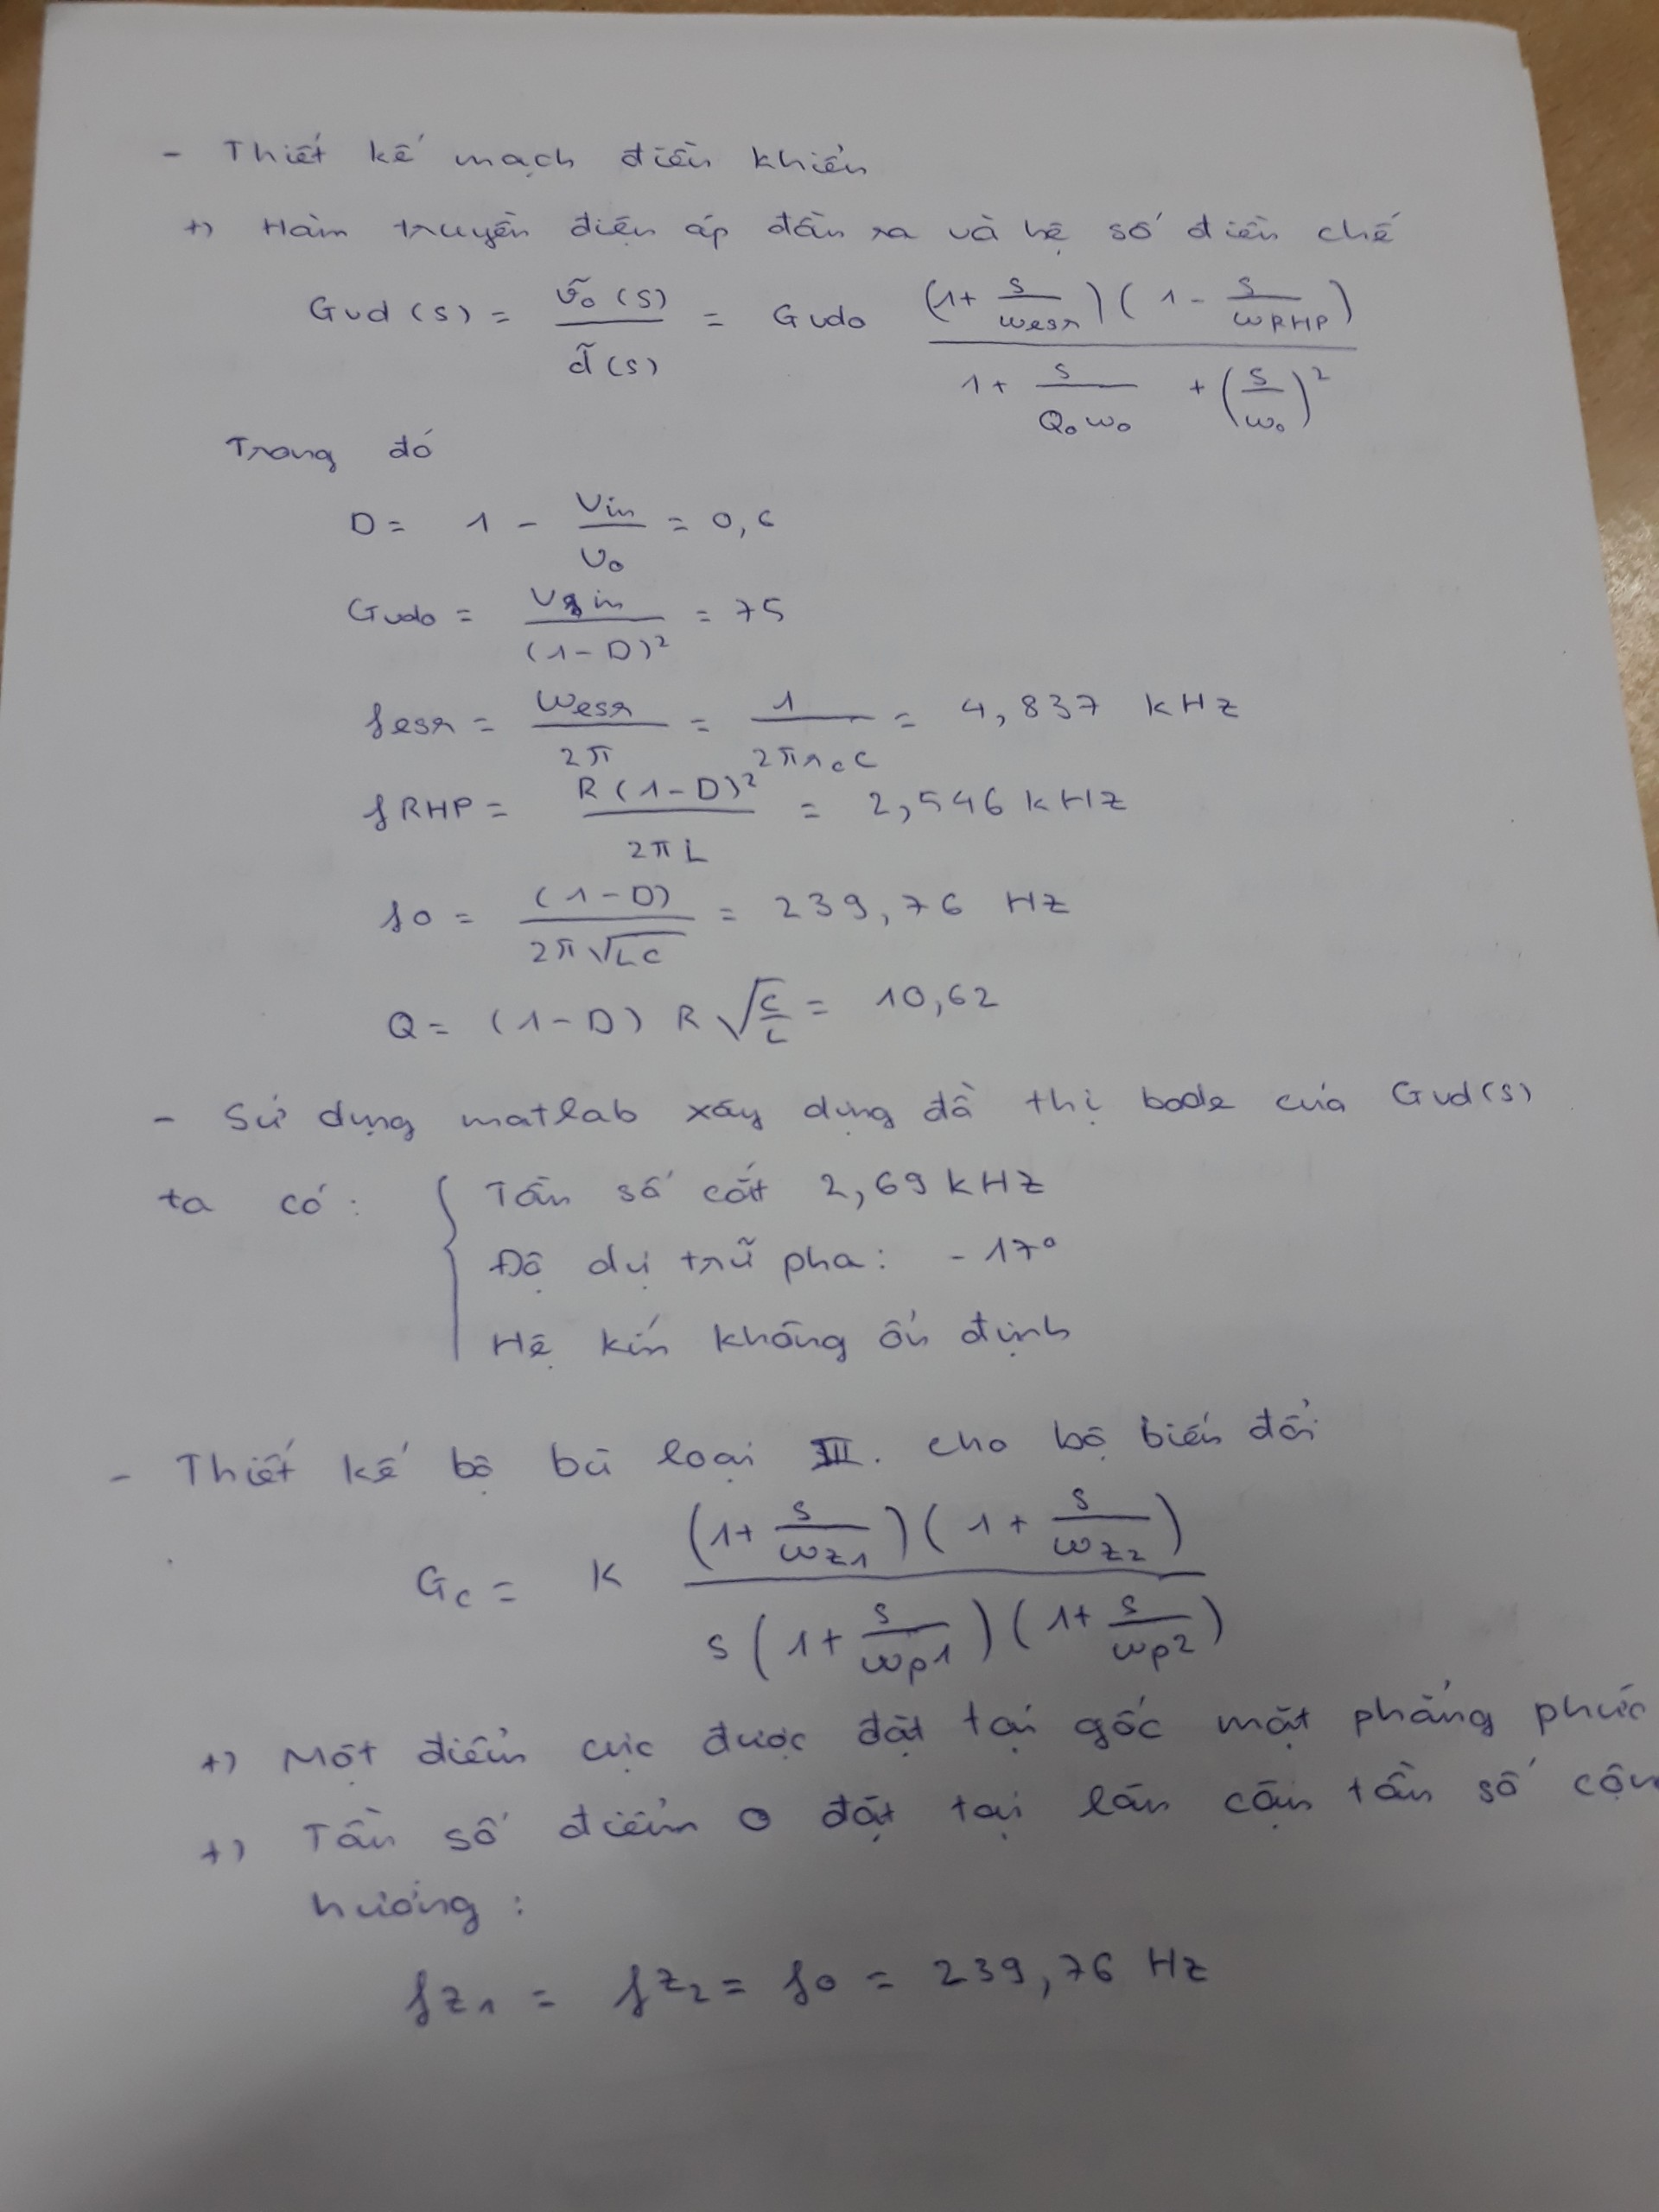 - Thiết kế mạch điều khiển
+) Hàm truyền điện áp đầu ra và hệ số điều chế
Gvd (s) = ṽo (s) / d̃ (s) = Gvdo (1 + s/ωesr) (1 - s/ωRHP) / (1 + s/(Qoωo) + (s/ωo)²)
Trong đó
D = 1 - Vin/Vo = 0,6
Gvdo = Vin / (1-D)² = 75
fesr = ωesr / 2π = 1 / (2π rc C) = 4,837 kHz
fRHP = R (1-D)² / 2πL = 2,546 kHz
fo = (1-D) / (2π√LC) = 239,76 Hz
Q = (1-D) R √(C/L) = 10,62
- Sử dụng matlab xây dựng đồ thị bode của Gvd(s)
ta có: { Tần số cắt 2,69 kHz
Độ dự trữ pha: - 17°
Hệ kín không ổn định
- Thiết kế bộ bù loại III. cho bộ biến đổi
Gc = K (1 + s/ωz1) (1 + s/ωz2) / (s (1 + s/ωp1) (1 + s/ωp2))
+) Một điểm cực được đặt tại gốc mặt phẳng phức
+) Tần số điểm 0 đặt tại lân cận tần số cộn
hưởng :
fz1 = fz2 = fo = 239,76 Hz